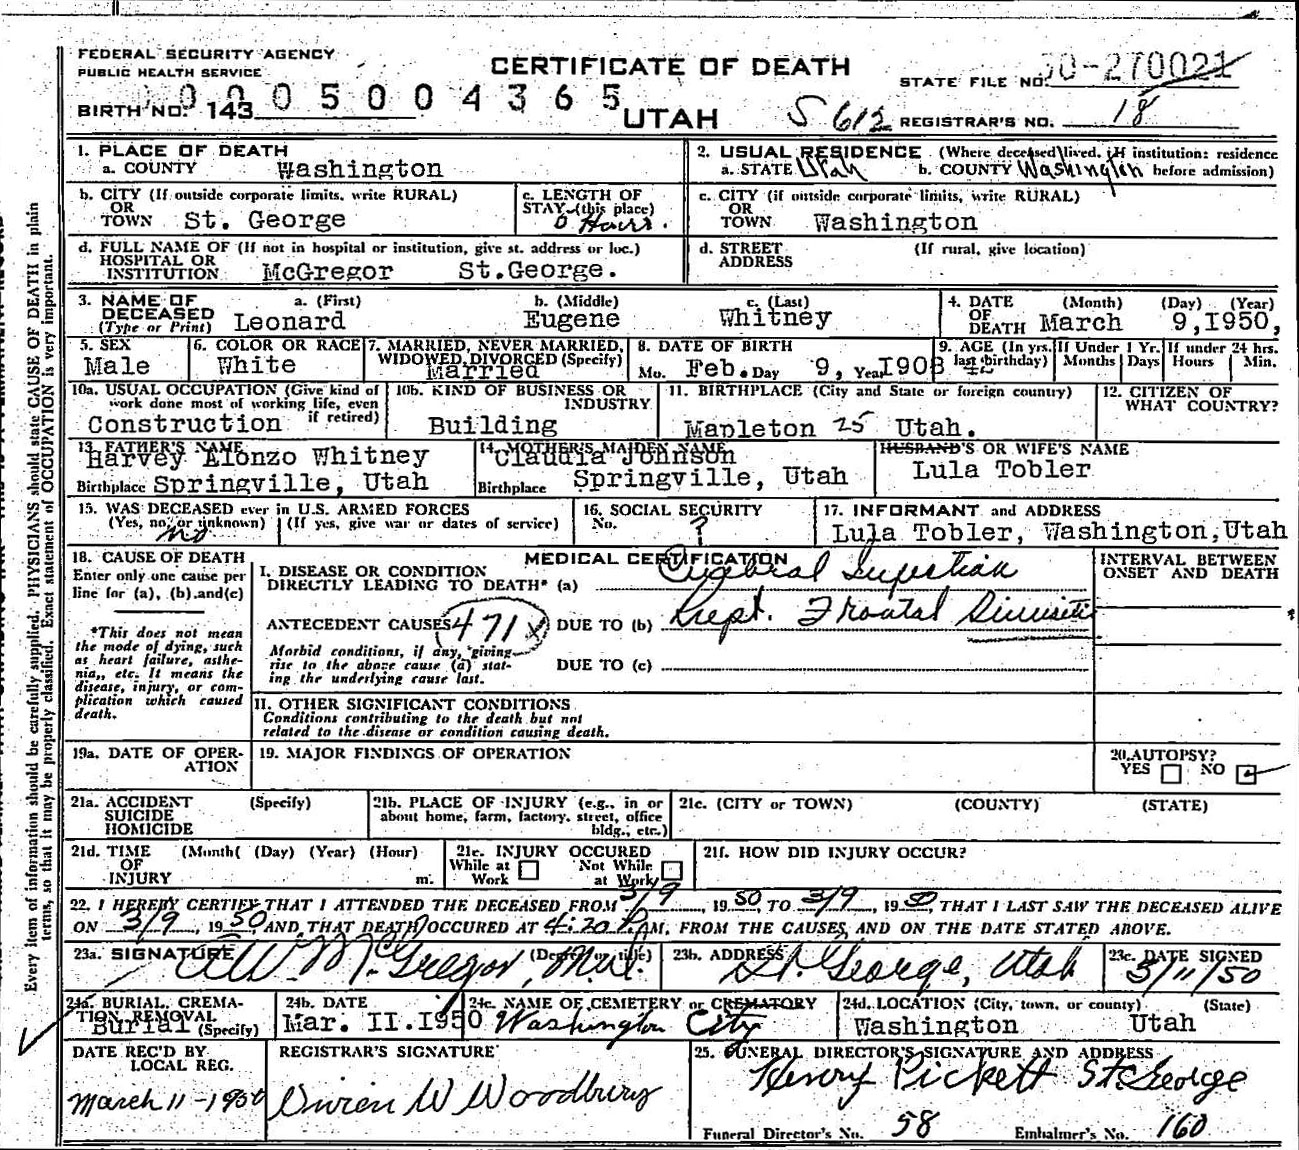 FEDERAL SECURITY AGENCY
PUBLIC HEALTH SERVICE
CERTIFICATE OF DEATH
STATE FILE NO. 50-270021
BIRTH NO. 143
0005004365
UTAH
S 612
REGISTRAR'S NO. 18
1. PLACE OF DEATH
a. COUNTY Washington
2. USUAL RESIDENCE (Where deceased lived. If institution: residence before admission)
a. STATE Utah b. COUNTY Washington
b. CITY (If outside corporate limits, write RURAL)
OR
TOWN St. George
c. LENGTH OF
STAY (this place)
Hours.
c. CITY (if outside corporate limits, write RURAL)
OR
TOWN Washington
d. FULL NAME OF (If not in hospital or institution, give st. address or loc.)
HOSPITAL OR
INSTITUTION McGregor St.George.
d. STREET (If rural, give location)
ADDRESS
3. NAME OF DECEASED
(Type or Print)
a. (First) b. (Middle) c. (Last)
Leonard Eugene Whitney
4. DATE OF DEATH (Month) (Day) (Year)
March 9,I950,
5. SEX
Male
6. COLOR OR RACE
White
7. MARRIED, NEVER MARRIED,
WIDOWED, DIVORCED (Specify)
Married
8. DATE OF BIRTH
Mo. Feb. Day 9, Year I908
9. AGE (In yrs. last birthday) 42
If Under 1 Yr.
Months Days
If under 24 hrs.
Hours Min.
10a. USUAL OCCUPATION (Give kind of
work done most of working life, even
if retired)
Construction
10b. KIND OF BUSINESS OR
INDUSTRY
Building
11. BIRTHPLACE (City and State or foreign country)
Mapleton 25 Utah.
12. CITIZEN OF
WHAT COUNTRY?
13. FATHER'S NAME
Harvey Elonzo Whitney
Birthplace Springville, Utah
14. MOTHER'S MAIDEN NAME
Claudia Johnson
Birthplace Springville, Utah
HUSBAND'S OR WIFE'S NAME
Lula Tobler
15. WAS DECEASED ever in U.S. ARMED FORCES
(Yes, no, or unknown) (If yes, give war or dates of service)
no
16. SOCIAL SECURITY
No. ?
17. INFORMANT and ADDRESS
Lula Tobler, Washington,Utah
18. CAUSE OF DEATH
Enter only one cause per
line for (a), (b) and (c)
*This does not mean
the mode of dying, such
as heart failure, asthe-
nia, etc. It means the
disease, injury, or com-
plication which caused
death.
MEDICAL CERTIFICATION
I. DISEASE OR CONDITION
DIRECTLY LEADING TO DEATH* (a) Cerebral
ANTECEDENT CAUSES 471x DUE TO (b) Frontal
Morbid conditions, if any, giving
rise to the above cause (a) stat-
ing the underlying cause last.
DUE TO (c)
INTERVAL BETWEEN
ONSET AND DEATH
II. OTHER SIGNIFICANT CONDITIONS
Conditions contributing to the death but not
related to the disease or condition causing death.
19a. DATE OF OPER-
ATION
19. MAJOR FINDINGS OF OPERATION
20. AUTOPSY?
YES NO
21a. ACCIDENT (Specify)
SUICIDE
HOMICIDE
21b. PLACE OF INJURY (e.g., in or
about home, farm, factory, street, office
bldg., etc.)
21c. (CITY or TOWN) (COUNTY) (STATE)
21d. TIME (Month( (Day) (Year) (Hour)
OF
INJURY m.
21e. INJURY OCCURED
While at Work Not While at Work
21f. HOW DID INJURY OCCUR?
22. I HEREBY CERTIFY THAT I ATTENDED THE DECEASED FROM 3/9, 1950, TO 3/9, 1950, THAT I LAST SAW THE DECEASED ALIVE
ON 3/9, 1950, AND THAT DEATH OCCURED AT 4:20 P.M, FROM THE CAUSES AND ON THE DATE STATED ABOVE.
23a. SIGNATURE (Degree or title)
McGregor, M.D.
23b. ADDRESS
St. George, Utah
23c. DATE SIGNED
3/11/50
24a. BURIAL, CREMA-
TION, REMOVAL
Burial (Specify)
24b. DATE
Mar. II.I950
24c. NAME OF CEMETERY or CREMATORY
Washington City
24d. LOCATION (City, town, or county) (State)
Washington Utah
DATE REC'D BY
LOCAL REG.
March 11-1950
REGISTRAR'S SIGNATURE
Vivien W Woodbury
25. FUNERAL DIRECTOR'S SIGNATURE AND ADDRESS
Henry Pickett St George
Funeral Director's No. 58 Embalmer's No. 160
Every item of information should be carefully supplied. PHYSICIANS should state CAUSE OF DEATH in plain
terms, so that it may be properly classified. Exact statement of OCCUPATION is very important.